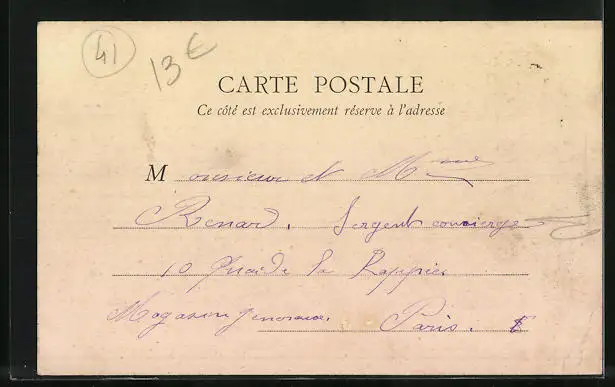 41
13 €
CARTE POSTALE
Ce côté est exclusivement réserve à l'adresse
Monsieur et Mme
Renard, Sergent concierge
10 Quai de la Rappée
Magasins généraux Paris.